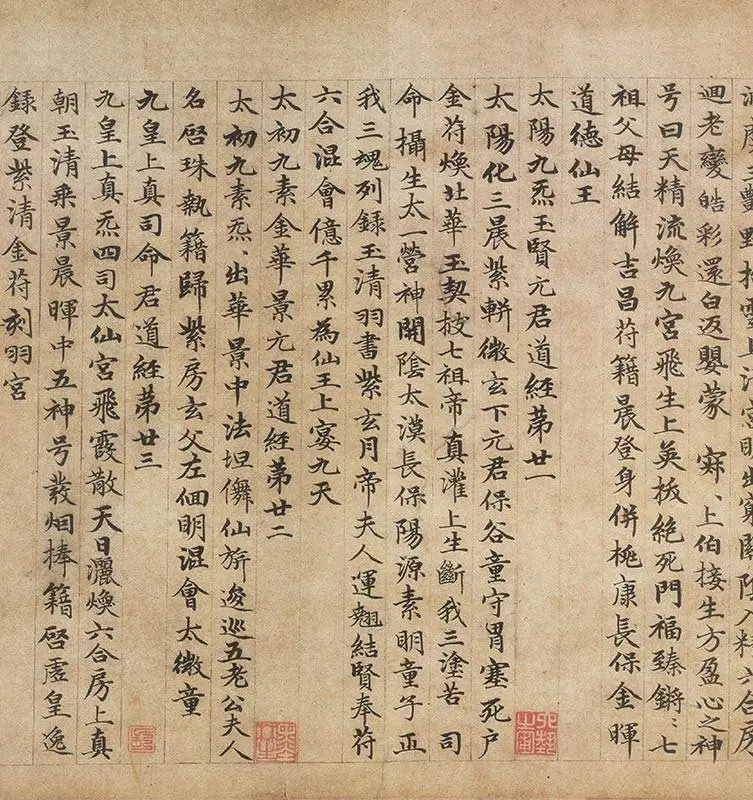 迴老變皓彩還白返嬰蒙 寀、上伯接生方盈心之神
号曰天精流煥九宮飛生上英拔絕死門福臻鏘〻七
祖父母結解吉昌苻籍晨登身併桃康長保金暉
道德仙王
太陽九炁玉賢元君道經苐廿一
太陽化三晨紫軿徼玄下元君保谷童守胃塞死户
金苻煥北華玉契披七祖帝真灌上生斷我三塗苦司
命攝生太一營神開陰太漠長保陽源素明童子正
我三魂列錄玉清羽書紫玄月帝夫人運翹結賢奉苻
六合混會億千累為仙王上宴九天
太初九素金華景元君道經苐廿二
太初九素炁、出華景中法坦儛仙旂逡巡五老公夫人
名啓珠執籍歸紫房玄父左佪明混會太微童
九皇上真司命君道經苐廿三
九皇上真炁四司太仙宮飛霞散天日灑煥六合房上真
朝玉清乘景晨暉中五神号叢烟捧籍啓虛皇逸
録登紫清金苻刻羽宮